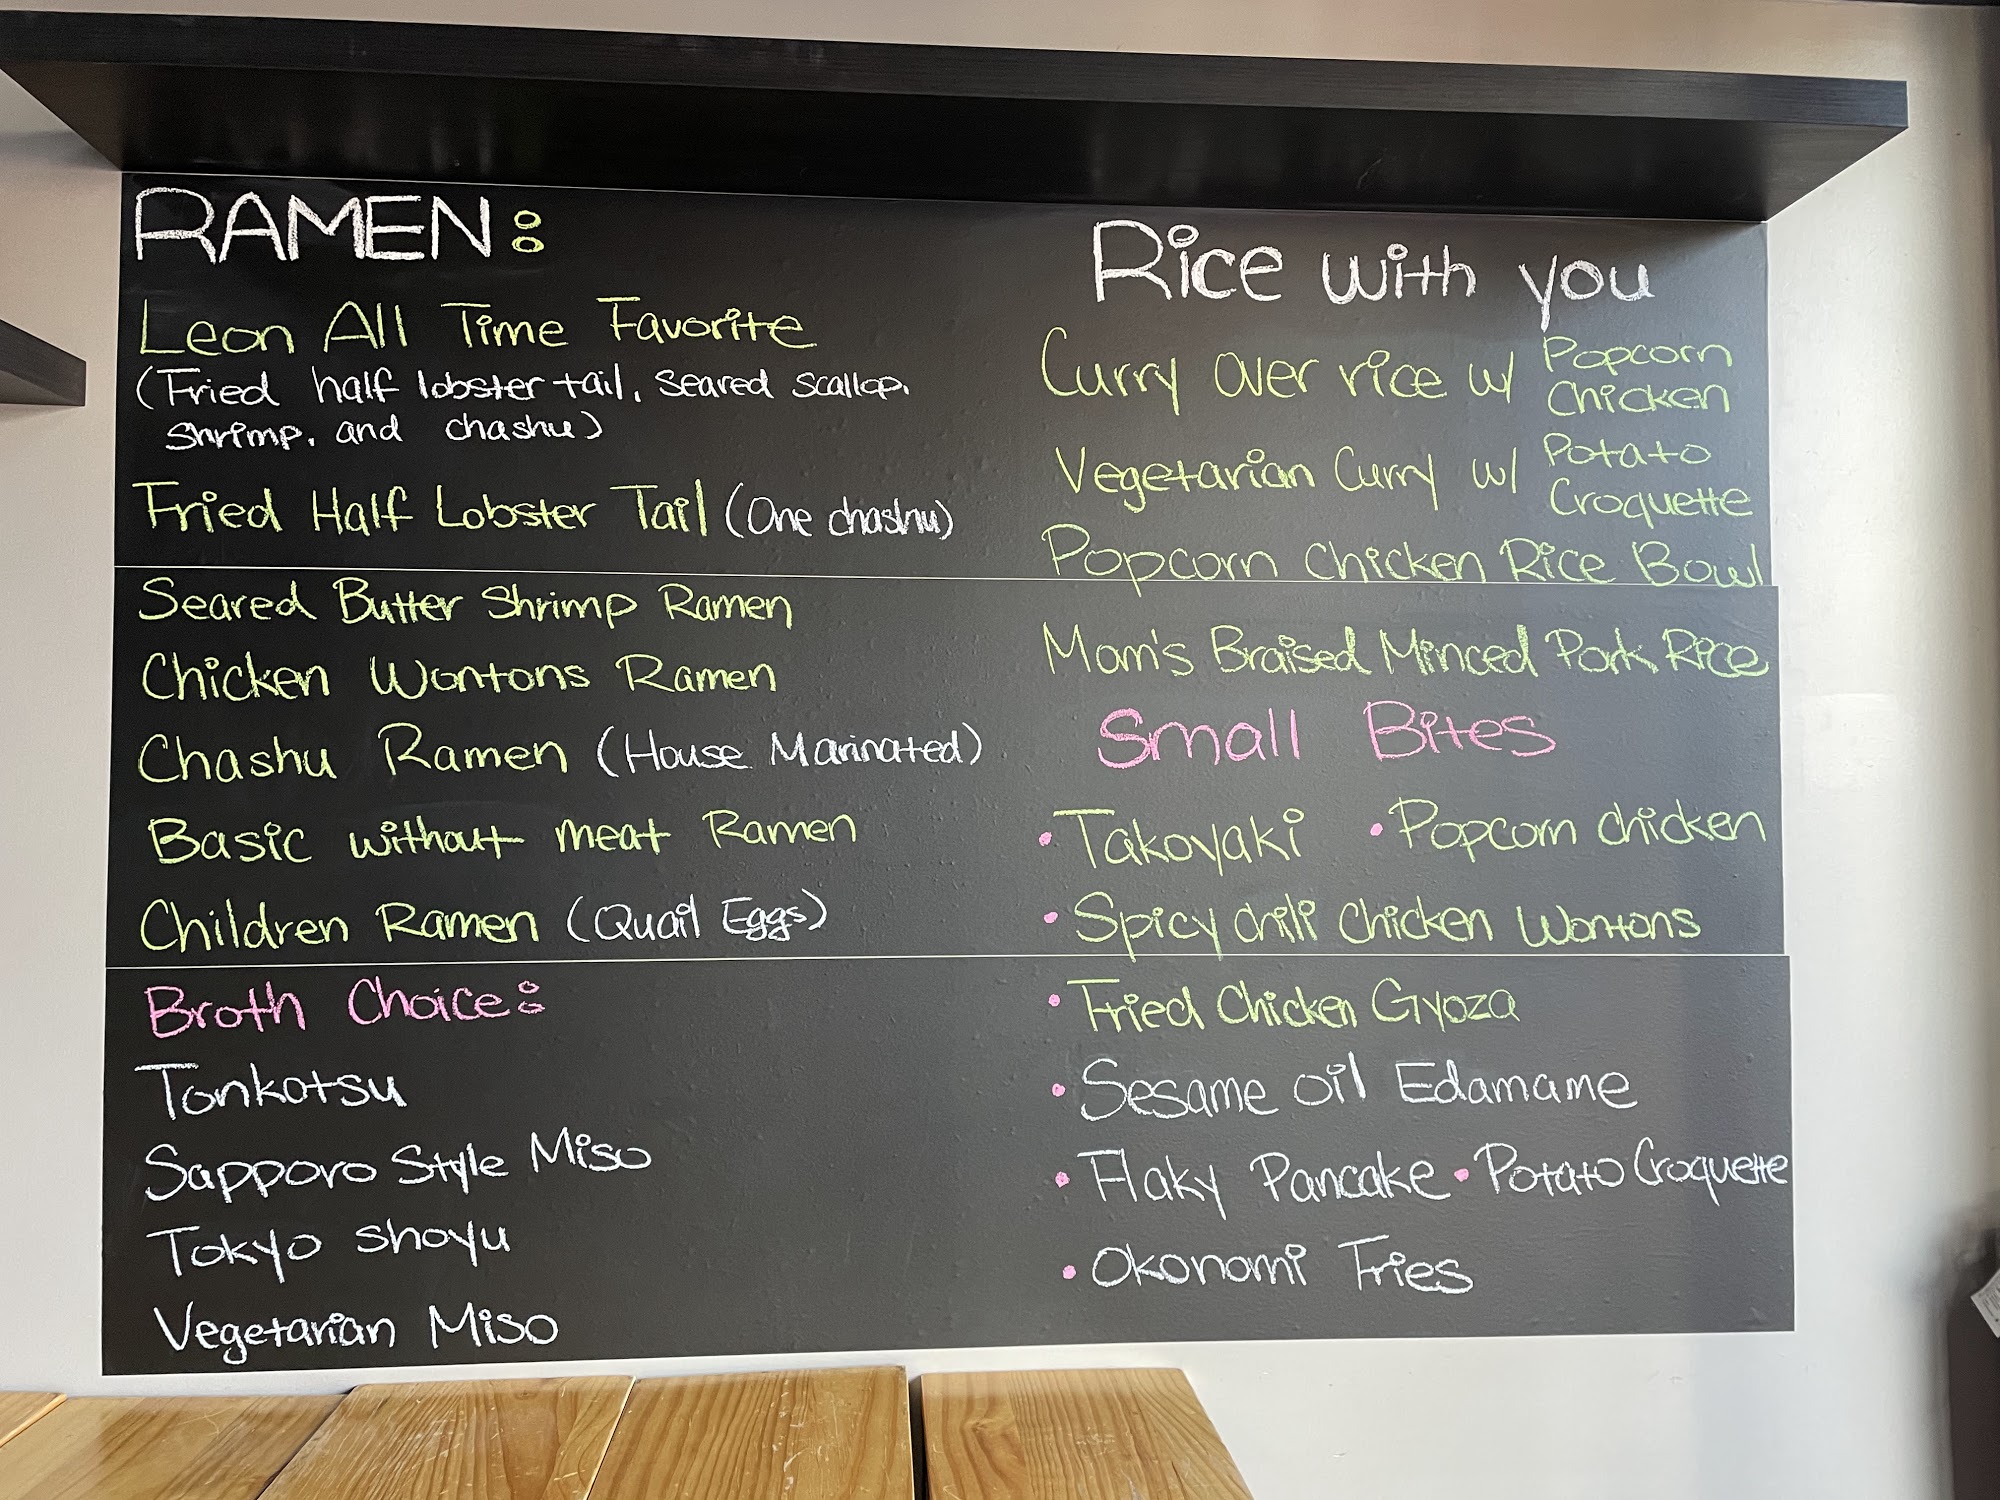 RAMEN:
Leon All Time Favorite
(Fried half lobster tail, seared scallop,
shrimp, and chashu)
Fried Half Lobster Tail (One chashu)
Seared Butter Shrimp Ramen
Chicken Wontons Ramen
Chashu Ramen (House Marinated)
Basic without meat Ramen
Children Ramen (Quail Eggs)
Broth Choice:
Tonkotsu
Sapporo Style Miso
Tokyo Shoyu
Vegetarian Miso
Rice with you
Curry over rice w/ Popcorn
Chicken
Vegetarian Curry w/ Potato
Croquette
Popcorn Chicken Rice Bowl
Mom's Braised Minced Pork Rice
Small Bites
• Takoyaki • Popcorn chicken
• Spicy chili Chicken Wontons
• Fried Chicken Gyoza
• Sesame oil Edamame
• Flaky Pancake • Potato Croquette
• Okonomi Fries